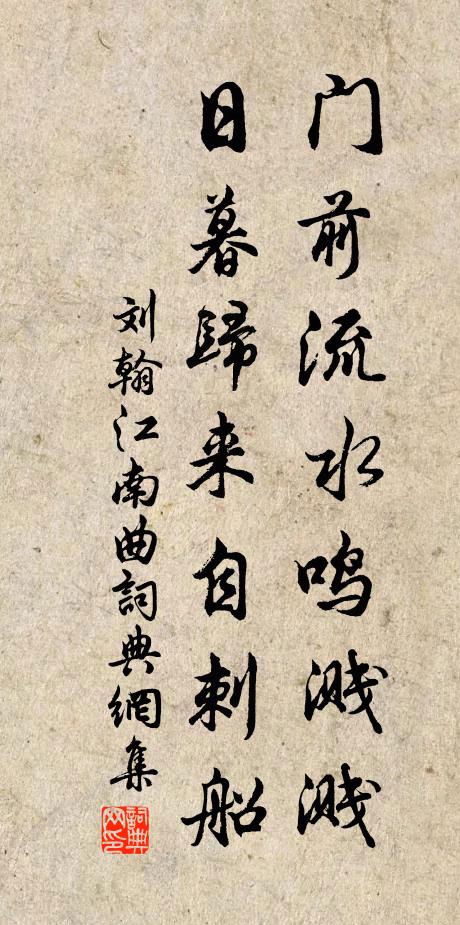 门前流水鸣溅溅
日暮歸来自刺船
刘翰江南曲詞典網集
詞典
网印